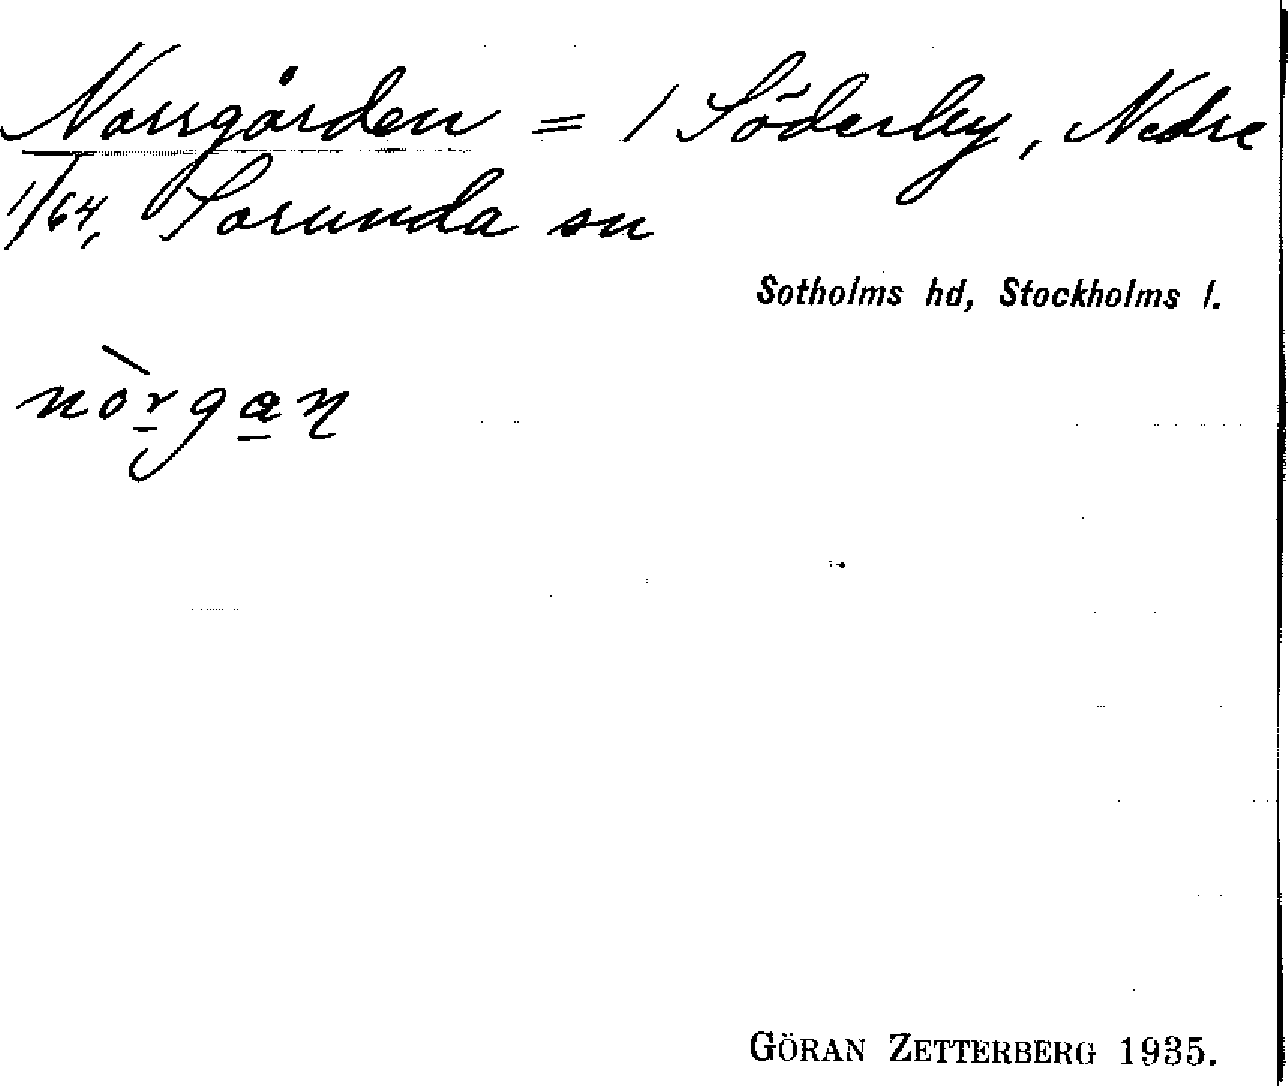 Norrgården = 1 Söderby, Nedre
1/64, Sorunda sn
Sotholms hd, Stockholms l.
nòrgan
GÖRAN ZETTERBERG 1935.